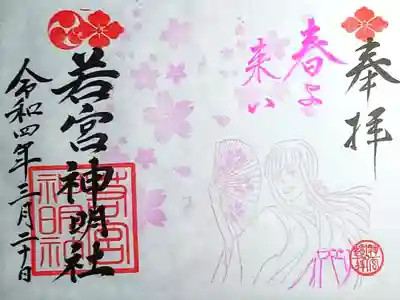 奉拝
春よ
来い
若宮神明社
令和四年三月二十日